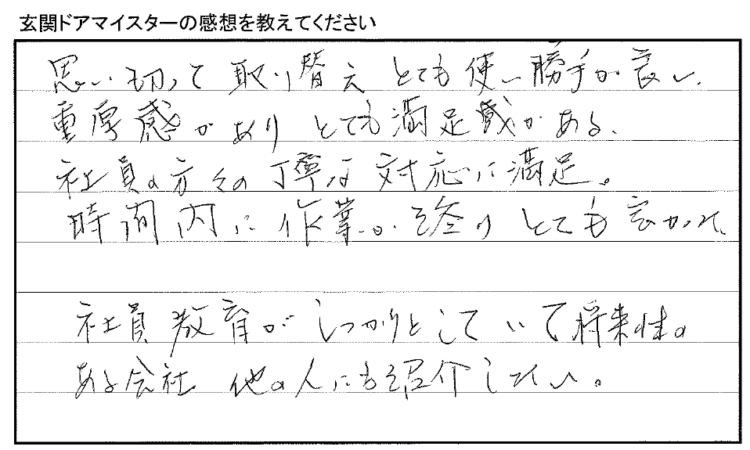 玄関ドアマイスターの感想を教えてください
思い切って取り替えとても使い勝手が良い、
重厚感がありとても満足感がある、
社員の方々の丁寧な対応に満足。
時間内に作業が終りとても良かった
社員教育がしっかりとしていて将来性の
ある会社 他の人にも紹介したい。